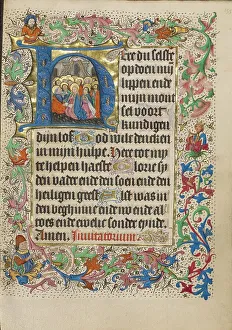 Here du selste
op doen mij
lippen ende
mijn mont
sel voort
kundigen
dijn lof God wilt dencken
in mijn hulpe Here tot my
te helpen haeste Glorie sy
den vader ende den soen ende den
heiligen geest Als was in
den beghinne ende nv ende al
toes ende ewelic sonder eynde
Amen. Inuitatorium